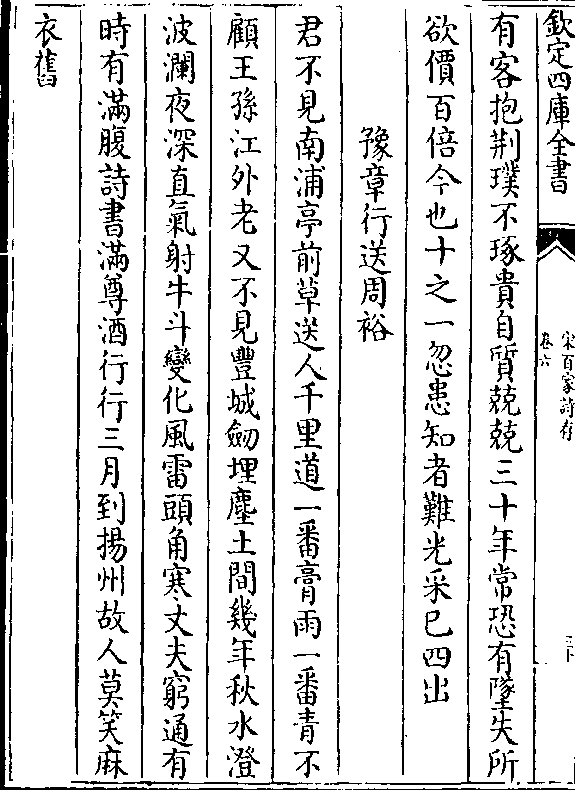 欽定四庫全書
宋百家詩存
卷六
有客抱荆璞不琢貴自質兢兢三十年常恐有墜失所
欲價百倍今也十之一忽患知者難光采已四出
豫章行送周裕
君不見南浦亭前草送人千里道一番膏雨一番青不
顧王孫江外老又不見豐城劒埋塵土間幾年秋水澄
波瀾夜深直氣射牛斗變化風雷頭角寒丈夫窮通有
時有滿腹詩書滿尊酒行行三月到揚州故人莫笑麻
衣舊